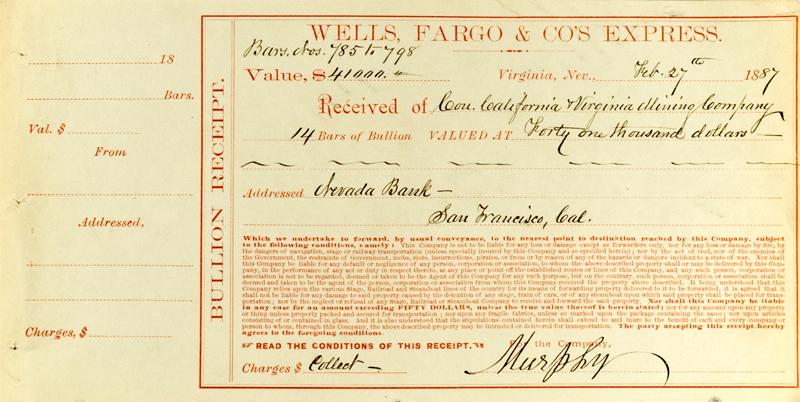 18
Bars.
Val. $
From
Addressed,
Charges, $
BULLION RECEIPT.
WELLS, FARGO & CO'S EXPRESS.
Bars. Nos. 785 to 798
Value, $ 41000.
Virginia, Nev., Feb. 27th 1887
Received of Con. California & Virginia Mining Company
14 Bars of Bullion VALUED AT Forty one thousand dollars
Addressed Nevada Bank
San Francisco, Cal.
Which we undertake to forward, by usual conveyance, to the nearest point to destination reached by this Company, subject
to the following conditions, namely: This Company is not to be liable for any loss or damage except as forwarders only, nor for any loss or damage by fire, by
the dangers of navigation, stage or railway transportation (unless specially insured by this Company and so specified herein); nor by the act of God, nor of the enemies of
the Government, the restraints of Government, mobs, riots, insurrections, pirates, or from or by reason of any of the hazards or dangers incident to a state of war. Nor shall
this Company be liable for any default or negligence of any person, corporation or association, to whom the above described property shall or may be delivered by this Company,
in the performance of any act or duty in respect thereto, at any place or point off the established routes or lines of this Company, and any such person, corporation or
association is not to be regarded, deemed or taken to be the Agent of this Company for any such purpose, but on the contrary, such person, corporation or association shall be
deemed and taken to be the agent of the person, corporation or association from whom this Company received the property above described. It being understood that this
Company relies upon the various Stage, Railroad and Steamboat lines of the country for its means of forwarding property delivered to it to be forwarded, it is agreed that it
shall not be liable for any damage to said property caused by the detention of any stage, train of cars, or of any steamboat upon which said property shall be placed for transportation;
nor by the neglect or refusal of any Stage, Railroad or Steamboat Company to receive and forward the said property. Nor shall this Company be liable
in any case for an amount exceeding FIFTY DOLLARS, unless the true value thereof is herein stated; nor for any loss or damage upon any property
or thing unless properly packed and secured for transportation; nor upon any fragile fabrics, unless so marked upon the package containing the same; nor upon articles
consisting of or contained in glass. And it is also understood that the stipulations contained herein shall extend to and inure to the benefit of each and every company or
person to whom, through this Company, the above described property may be intrusted or delivered for transportation. The party accepting this receipt hereby
agrees to the foregoing conditions.
READ THE CONDITIONS OF THIS RECEIPT.
the Company,
Charges $ Collect
Murphy